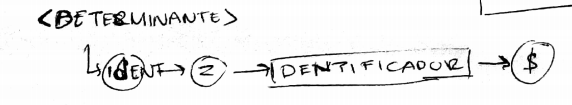 <DETERMINANTE>
↳ IDENT → 2 → IDENTIFICADOR → $